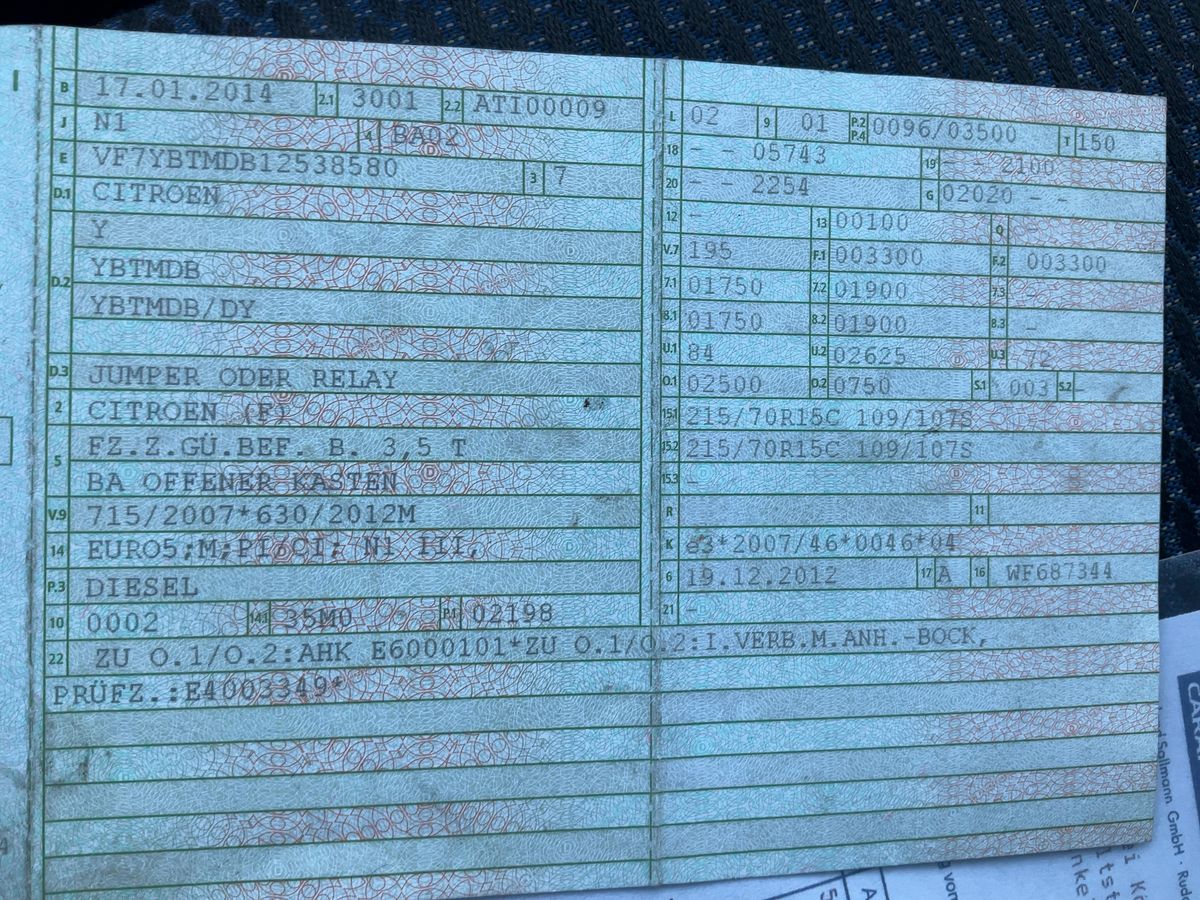 I
B 17.01.2014 2.1 3001 2.2 ATI00009
J N1 4 BA02
E VF7YBTMDB12538580 3 7
D.1 CITROEN
Y
D.2 YBTMDB
YBTMDB/DY
D.3 JUMPER ODER RELAY
2 CITROEN (F)
5 FZ.Z.GÜ.BEF. B. 3,5 T
BA OFFENER KASTEN
V.9 715/2007*630/2012M
14 EURO5;M;PI/CI; N1 III,
P.3 DIESEL
10 0002 14.1 35M0 P.1 02198
L 02 9 01 P.2 P.4 0096/03500 T 150
18 - - 05743 19 - - 2100
20 - - 2254 G 02020 - -
12 - 13 00100 Q -
V.7 195 F.1 003300 F.2 003300
7.1 01750 7.2 01900 7.3 -
8.1 01750 8.2 01900 8.3 -
U.1 84 U.2 02625 U.3 72
O.1 02500 O.2 0750 S.1 003 S.2 -
15.1 215/70R15C 109/107S
15.2 215/70R15C 109/107S
15.3 -
R 11
K e3*2007/46*0046*04
6 19.12.2012 17 A 16 WF687344
21 -
22 ZU O.1/O.2:AHK E6000101*ZU O.1/O.2:I.VERB.M.ANH.-BOCK,
PRÜFZ.:E4003349*
Sallmann GmbH · Rudo